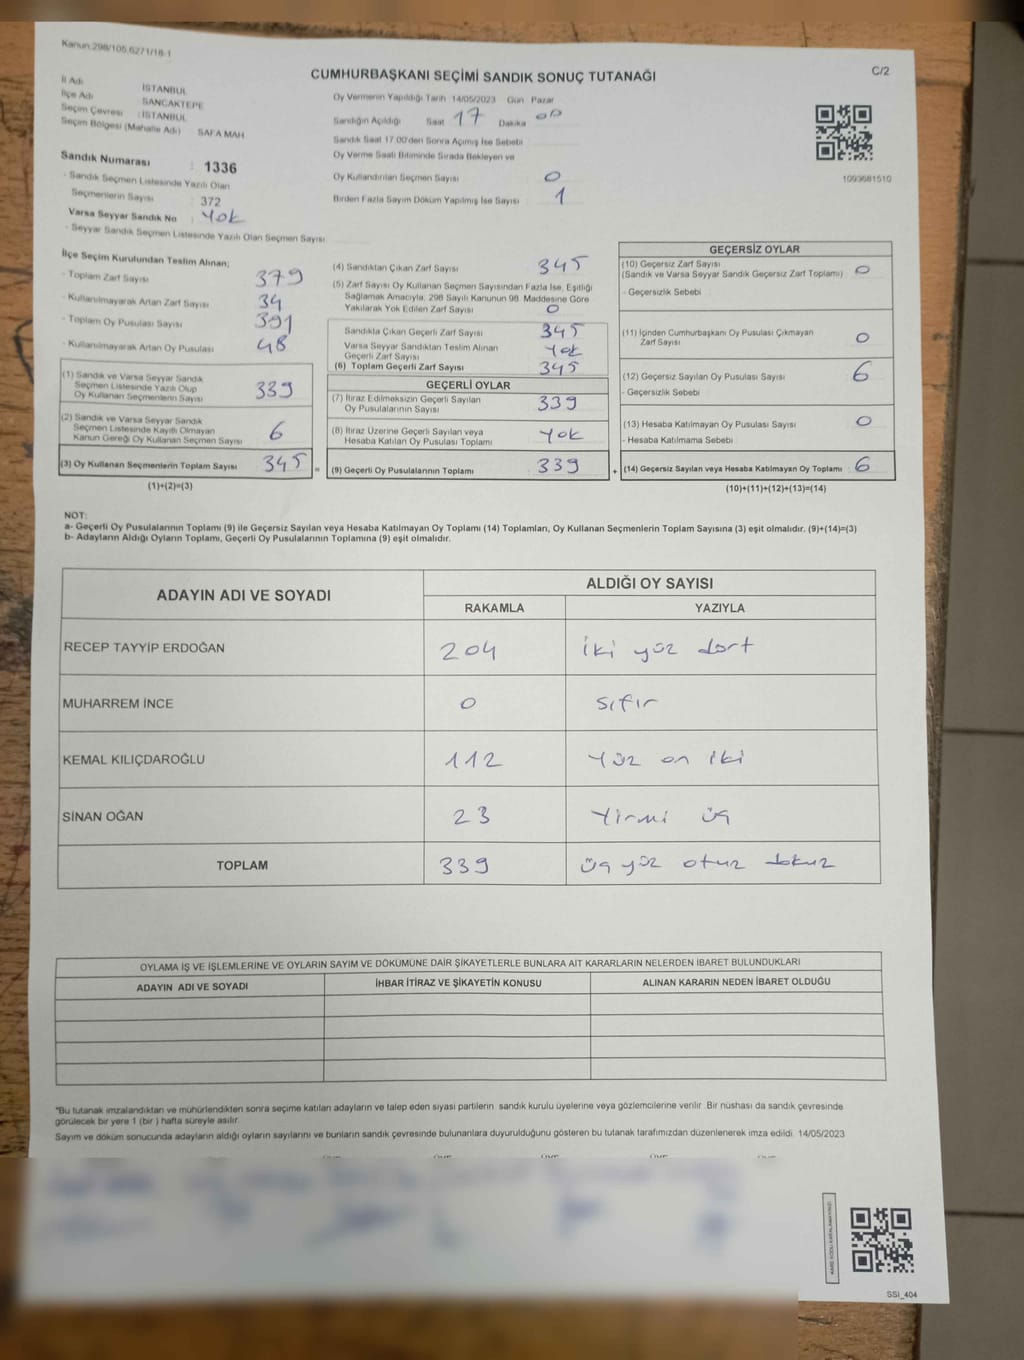 Kanun:298/105,6271/18-1
C/2
CUMHURBAŞKANI SEÇİMİ SANDIK SONUÇ TUTANAĞI
İl Adı : İSTANBUL
İlçe Adı : SANCAKTEPE
Seçim Çevresi : İSTANBUL
Seçim Bölgesi (Mahalle Adı) : SAFA MAH.
Sandık Numarası : 1336
- Sandık Seçmen Listesinde Yazılı Olan
Seçmenlerin Sayısı : 372
Varsa Seyyar Sandık No : Yok
- Seyyar Sandık Seçmen Listesinde Yazılı Olan Seçmen Sayısı
Oy Vermenin Yapıldığı Tarih 14/05/2023 Gün Pazar
Sandığın Açıldığı Saat 17 Dakika 00
Sandık Saat 17.00'den Sonra Açımış İse Sebebi
Oy Verme Saati Bitiminde Sırada Bekleyen ve
Oy Kullandırılan Seçmen Sayısı 0
Birden Fazla Sayım Döküm Yapılmış İse Sayısı 1
1093681510
İlçe Seçim Kurulundan Teslim Alınan;
- Toplam Zarf Sayısı 379
- Kullanılmayarak Artan Zarf Sayısı 34
- Toplam Oy Pusulası Sayısı 391
- Kullanılmayarak Artan Oy Pusulası 48
(1) Sandık ve Varsa Seyyar Sandık
Seçmen Listesinde Yazılı Olup
Oy Kullanan Seçmenlerin Sayısı 339
(2) Sandık ve Varsa Seyyar Sandık
Seçmen Listesinde Kayıtlı Olmayan
Kanun Gereği Oy Kullanan Seçmen Sayısı 6
(3) Oy Kullanan Seçmenlerin Toplam Sayısı 345 =
(1)+(2)=(3)
(4) Sandıktan Çıkan Zarf Sayısı 345
(5) Zarf Sayısı Oy Kullanan Seçmen Sayısından Fazla İse, Eşitliği
Sağlamak Amacıyla, 298 Sayılı Kanunun 98. Maddesine Göre
Yakılarak Yok Edilen Zarf Sayısı 0
Sandıkta Çıkan Geçerli Zarf Sayısı 345
Varsa Seyyar Sandıktan Teslim Alınan
Geçerli Zarf Sayısı Yok
(6) Toplam Geçerli Zarf Sayısı 345
GEÇERLİ OYLAR
(7) İtiraz Edilmeksizin Geçerli Sayılan
Oy Pusulalarının Sayısı 339
(8) İtiraz Üzerine Geçerli Sayılan veya
Hesaba Katılan Oy Pusulası Toplamı Yok
(9) Geçerli Oy Pusulalarının Toplamı 339 +
GEÇERSİZ OYLAR
(10) Geçersiz Zarf Sayısı
(Sandık ve Varsa Seyyar Sandık Geçersiz Zarf Toplamı) 0
- Geçersizlik Sebebi
(11) İçinden Cumhurbaşkanı Oy Pusulası Çıkmayan
Zarf Sayısı 0
(12) Geçersiz Sayılan Oy Pusulası Sayısı 6
- Geçersizlik Sebebi
(13) Hesaba Katılmayan Oy Pusulası Sayısı 0
- Hesaba Katılmama Sebebi
(14) Geçersiz Sayılan veya Hesaba Katılmayan Oy Toplamı 6
(10)+(11)+(12)+(13)=(14)
NOT:
a- Geçerli Oy Pusulalarının Toplamı (9) ile Geçersiz Sayılan veya Hesaba Katılmayan Oy Toplamı (14) Toplamları, Oy Kullanan Seçmenlerin Toplam Sayısına (3) eşit olmalıdır. (9)+(14)=(3)
b- Adayların Aldığı Oyların Toplamı, Geçerli Oy Pusulalarının Toplamına (9) eşit olmalıdır.
ADAYIN ADI VE SOYADI
ALDIĞI OY SAYISI
RAKAMLA YAZIYLA
RECEP TAYYİP ERDOĞAN 204 iki yüz dört
MUHARREM İNCE 0 sıfır
KEMAL KILIÇDAROĞLU 112 Yüz on iki
SİNAN OĞAN 23 Yirmi üç
TOPLAM 339 üç yüz otuz dokuz
OYLAMA İŞ VE İŞLEMLERİNE VE OYLARIN SAYIM VE DÖKÜMÜNE DAİR ŞİKAYETLERLE BUNLARA AİT KARARLARIN NELERDEN İBARET BULUNDUKLARI
ADAYIN ADI VE SOYADI İHBAR İTİRAZ VE ŞİKAYETİN KONUSU ALINAN KARARIN NEDEN İBARET OLDUĞU
*Bu tutanak imzalandıktan ve mühürlendikten sonra seçime katılan adayların ve talep eden siyasi partilerin sandık kurulu üyelerine veya gözlemcilerine verilir. Bir nüshası da sandık çevresinde
görülecek bir yere 1 (bir ) hafta süreyle asılır.
Sayım ve döküm sonucunda adayların aldığı oyların sayılarını ve bunların sandık çevresinde bulunanlara duyurulduğunu gösteren bu tutanak tarafımızdan düzenlenerek imza edildi. 14/05/2023
KARE KODU KARALAMAYINIZ!
SSI_404